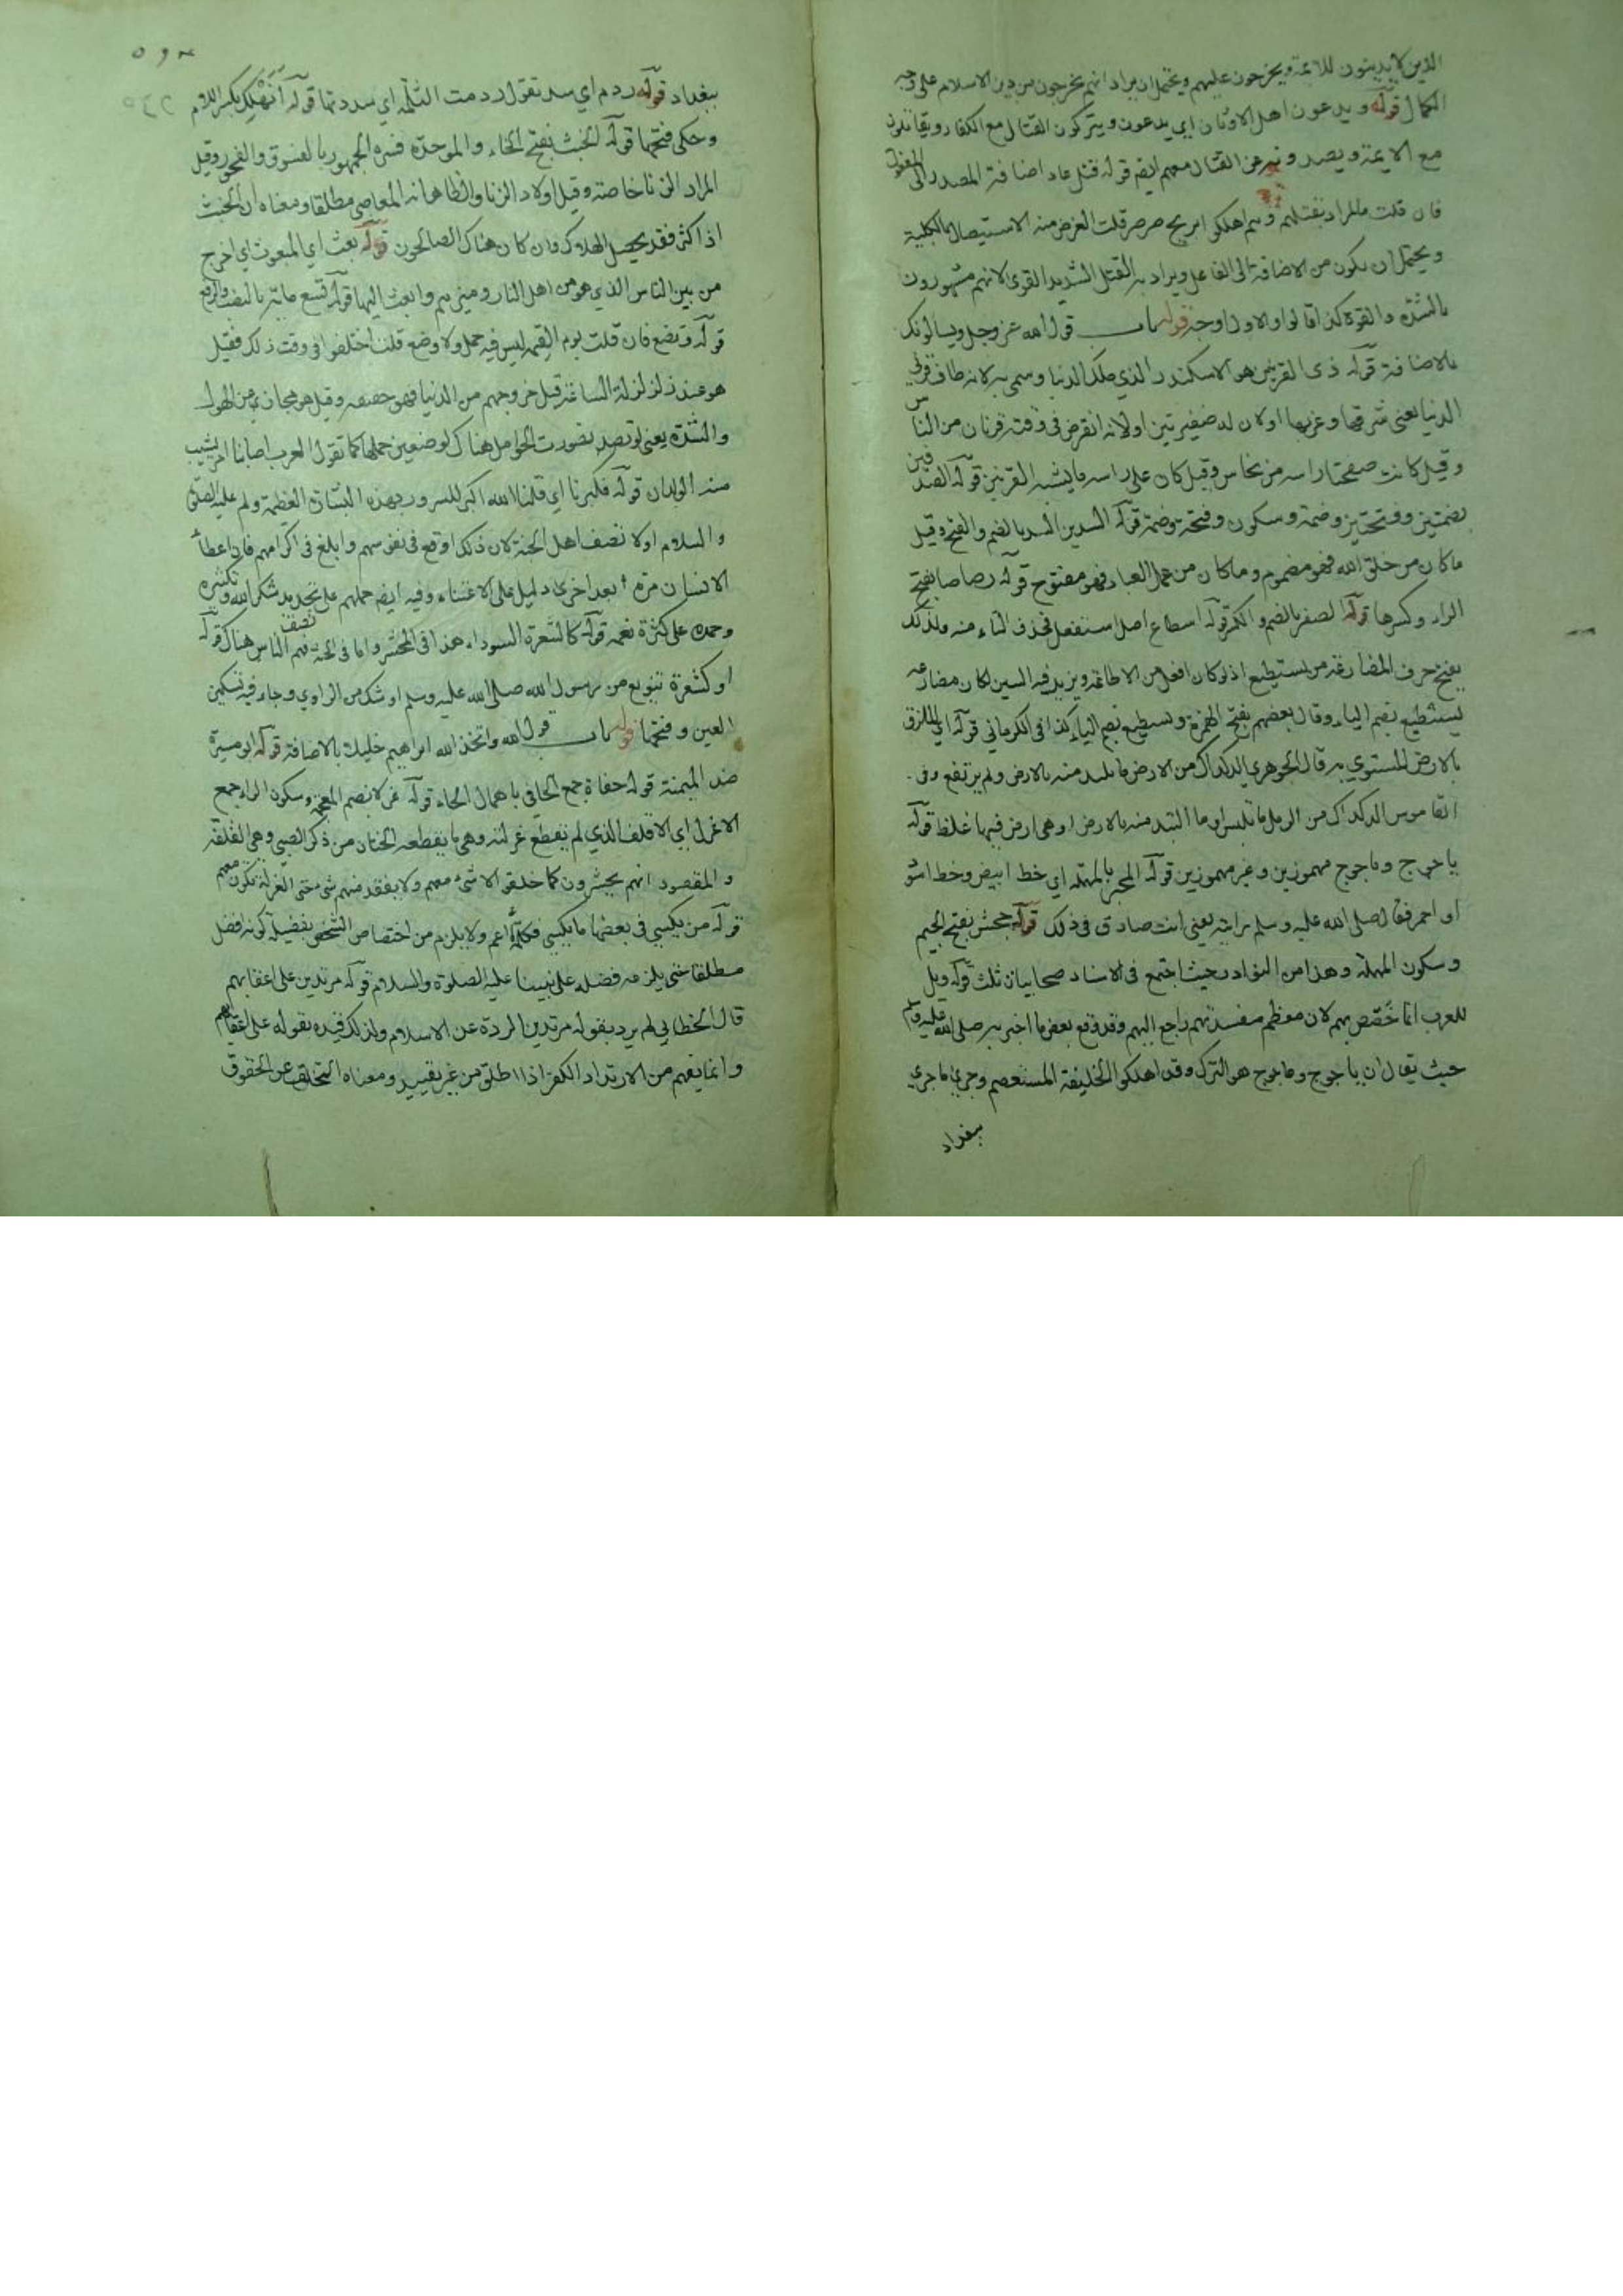 الذين لا يدينون للائمة ويخرجون عليهم ويحتمل ان يراد انهم يخرجون من دين الاسلام على وجه
الكمال قوله ويدعون اهل الاوثان اي يدعون ويتركون القتال مع الكفار ويقاتلون
مع الايمة ويصدرونهم عن القتال معهم ايضا قوله قتل عاد اضافة المصدر الى المفعول
فان قلت ما المراد بقتلهم وهم اهلكوا بريح صرصر قلت الغرض منه الاستيصال بالكلية
ويحتمل ان يكون من الاضافة الى الفاعل ويراد به القتل الشديد القوي لانهم مشهورون
بالشدة والقوة كذا قالوا والاول اوجه قوله باب قول الله عز وجل ويسالونك
بالاضافة قوله ذي القرنين هو الاسكندر الذي ملك الدنيا وسمي به لانه طاف قرني
الدنيا يعني شرقها وغربها اولان له ضفيرتين اولانه انقرض في وقته قرنان من الناس
وقيل كانت صفحتا راسه من نحاس وقيل كان على راسه ما يشبه القرنين قوله الصدفين
بضمتين وفتحتين وضمة وسكون وفتحة وضمة قوله السدين السد بالضم والفتح وقيل
ما كان من خلق الله فهو مضموم وما كان من عمل العباد فهو مفتوح قوله رصاصا بفتح
الراء وكسرها قوله الصفر بالضم والكسر قوله اسطاع اصله استفعل فحذف التاء منه ولذلك
بفتح حرف المضارعة من يستطيع اذ لو كان افعل من الاطاعة ويزيد فيه السين لكان مضارعه
يسطيع بضم الياء وقال بعضهم بفتح الهمزة ويسطيع بضم الياء كذا في الكرماني قوله اي الملزق
بالارض المستوي به قال الجوهري الدكداك من الارض ما تلبد منه بالارض ولم يرتفع وفي
القاموس الدكداك من الرمل ما تكبس او ما التبد منه بالارض او هي ارض فيها غلظ قوله
ياجوج وماجوج مهموزين وغير مهموزين قوله المحبر بالمهملة اي خط ابيض وخط اسود
او احمر فقال صلى الله عليه وسلم رايته يعني انت صادق في ذلك قوله جحش بفتح الجيم
وسكون المهملة وهذا من النوادر بحيث اجتمع في الاسناد صحابيات ثلث قوله ويل
للعرب انما خصص بهم لان معظم مفسدتهم راجع اليهم وقد وقع بعض ما اخبر به صلى الله عليه وسلم
حيث يقال ان ياجوج وماجوج هو الترك وقد اهلكوا الخليفة المستعصم وجرى ما جرى
ببغداد
ببغداد قوله ردم اي سد تقول ردمت الثلمة اي سددتها قوله أنهلك بكسر اللام
وحكى فتحها قوله الخبث بفتح الخاء والموحدة فسره الجمهور بالفسوق والفجور وقيل
المراد الزنا خاصة وقيل اولاد الزنا والظاهر انه المعاصي مطلقا ومعناه ان الخبث
اذا كثر فقد يحصل الهلاك وان كان هناك الصالحون قوله بعث اي المبعوث اي اخرج
من بين الناس الذي هو من اهل النار وميزهم وابعث اليها قوله تسع مائة بالنصب والرفع
قوله وتضع فان قلت يوم القيمة ليس فيه حمل ولا وضع قلت اختلفوا في وقت ذلك فقيل
هو عند زلزلة الساعة قبل خروجهم من الدنيا فهو حقيقة وقيل هو مجاز عن الهول
والشدة يعني لو تصورت الحوامل هناك لوضعن حملها كما تقول العرب اصابنا امر يشيب
منه الولدان قوله فكبرنا اي قلنا الله اكبر للسرور بهذه البشارة العظيمة ولم عليه الصلوة
والسلام اولا نصف اهل الجنة لان ذلك اوقع في نفوسهم وابلغ في اكرامهم فان اعطاء
الانسان مرة بعد اخرى دليل على الاعتناء وفيه ايضا حملهم على تجديد شكر الله وتكثيره
وحمده على كثرة نعمه قوله كالشعرة السوداء هذا في المحشر واما في الجنة فهم نصف الناس هناك قوله
او كشعرة تنويع من رسول الله صلى الله عليه وسلم او شك من الراوي وجاء فيه تسكين
العين وفتحها قوله باب قول الله واتخذ الله ابراهيم خليلا بالاضافة قوله الوميسرة
ضد الميمنة قوله حفاة جمع الحافي باهمال الحاء قوله غرلا بضم المعجمة وسكون الراء جمع
الاغرل اي الاقلف الذي لم يقطع غرلته وهي ما يقطعه الختان من ذكر الصبي وهي القلفة
والمقصود انهم يحشرون كما خلقوا لا شيء معهم ولا يفقد منهم شي حتى الغرلة تكون معهم
قوله من يكسى في بعضها ما يكسى فكلمة ما اعم ولا يلزم من اختصاص الشخص بفضيلة كونه افضل
مطلقا حتى يلزم فضله على نبينا عليه الصلوة والسلام قوله مرتدين على اعقابهم
قال الخطابي لم يرد بقوله مرتدين الردة عن الاسلام ولذلك قيده بقوله على اعقابهم
وانما يفهم من الارتداد الكفر اذا اطلق من غير تقييد ومعناه التخلف عن الحقوق